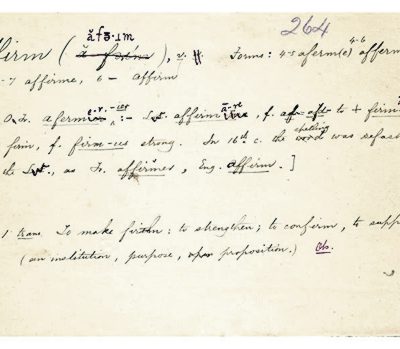 264
ăfɜ·ɹm
firm (ă fɜɹm), v. Forms: 4-5 aferm(e) 4-6 afferm
-7 affirme, 6- affirm
O.Fr. afermer :- L. affirmāre, f. af- to + firm
firm, f. firm-us strong. In 16th c. the spelling was refas
the L., as Fr. affirmer, Eng. affirm.]
1. trans. To make firm: to strengthen; to confirm, to supp
(an institution, purpose, proposition.) Obs.